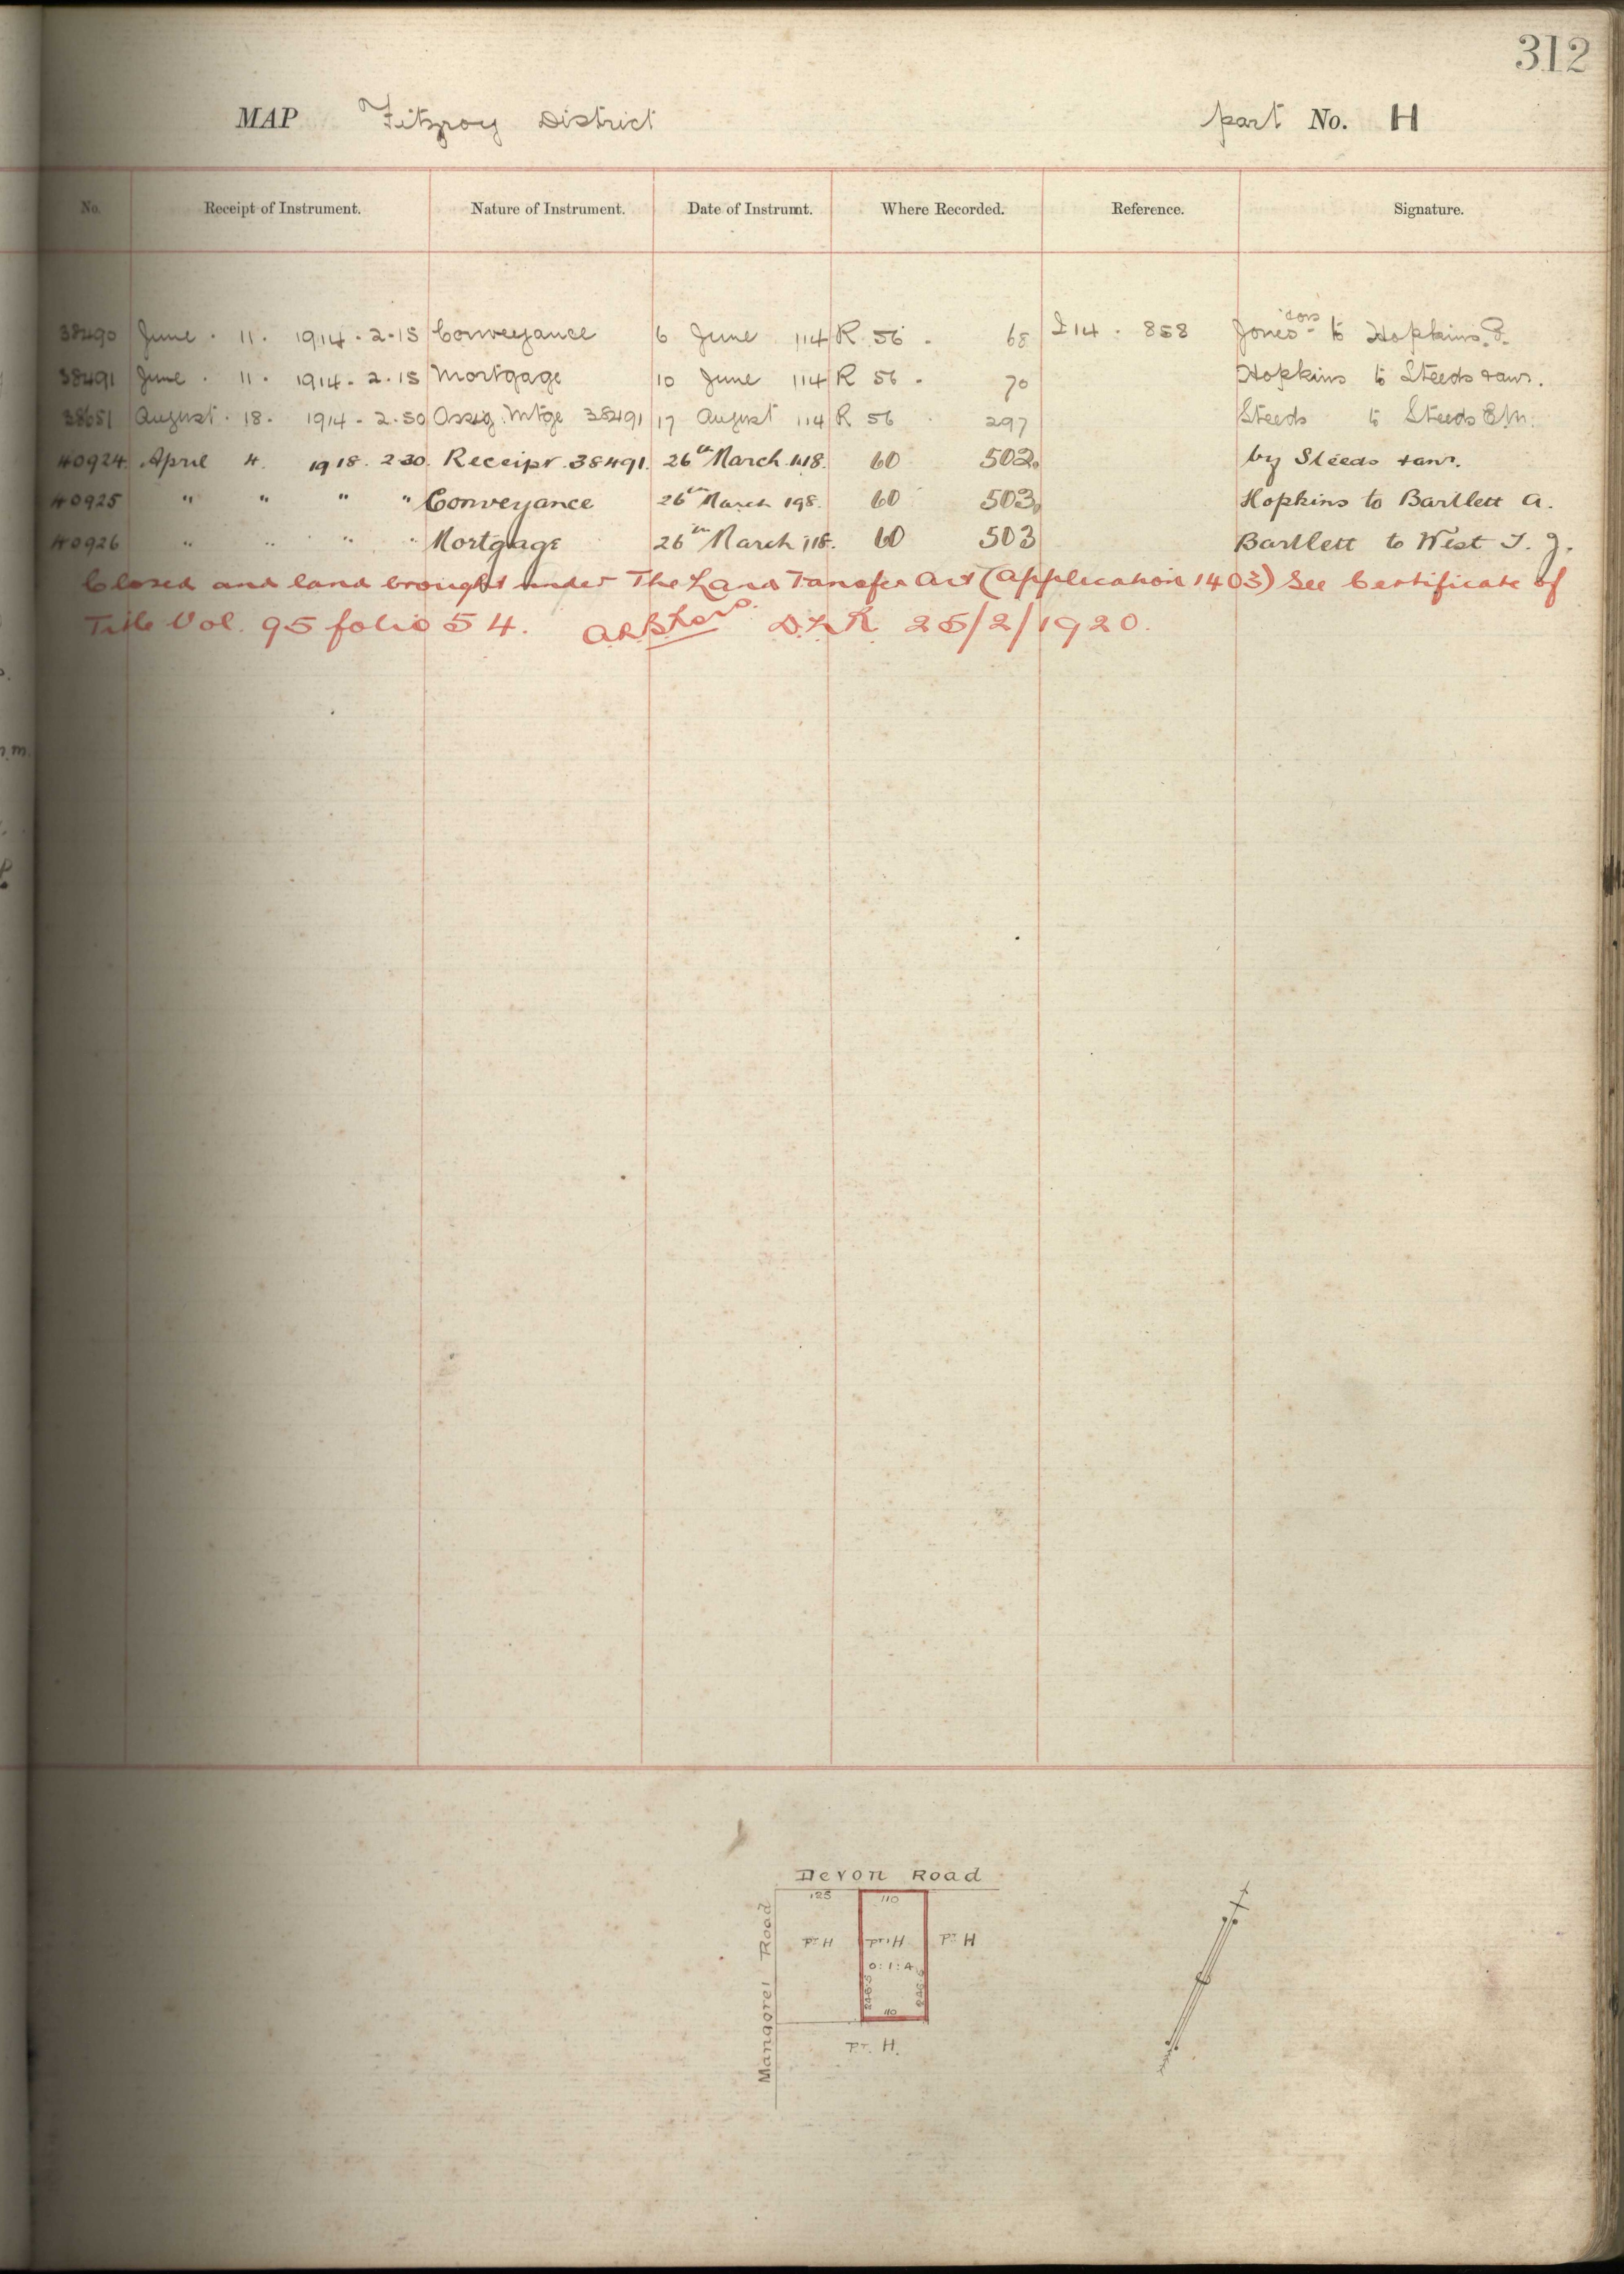 312
MAP Fitzroy District part No. H
No. Receipt of Instrument. Nature of Instrument. Date of Instrumt. Where Recorded. Reference. Signature.
38490 June . 11 . 1914 - 2.15 Conveyance 6 June 1914 R 56 . 68 I 14 . 858 Jones to Hopkins
38491 June . 11 . 1914 - 2.15 Mortgage 10 June 1914 R 56 . 70 Hopkins to Steeds & anr.
38651 August . 18 . 1914 - 2.50 Assig. Mtge 38491 17 August 1914 R 56 . 297 Steeds to Steeds E M.
40924 April 4. 1918. 2 30. Receipt 38491. 26th March 1918. 60 502. by Steeds & anr.
40925 " " " " Conveyance 26th March 198. 60 503, Hopkins to Bartlett A.
40926 " " " " Mortgage 26th March 1918. 60 503 Bartlett to West T. J.
Closed and land brought under The Land Transfer Act (Application 1403) See Certificate of
Title Vol. 95 folio 54. D.L.R. 25/2/1920.
Devon Road
125 110
Mangorei Road
Pt. H pt. H Pt. H
0 : 1 : 4
246.5 246.5
110
PT. H.